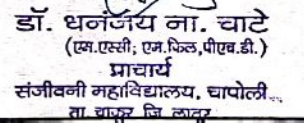 डॉ. धनंजय ना. चाटे
(एम.एससी; एम.फिल,पीएच.डी.)
प्राचार्य
संजीवनी महाविद्यालय, चापोली
ता. चाकूर जि. लातूर